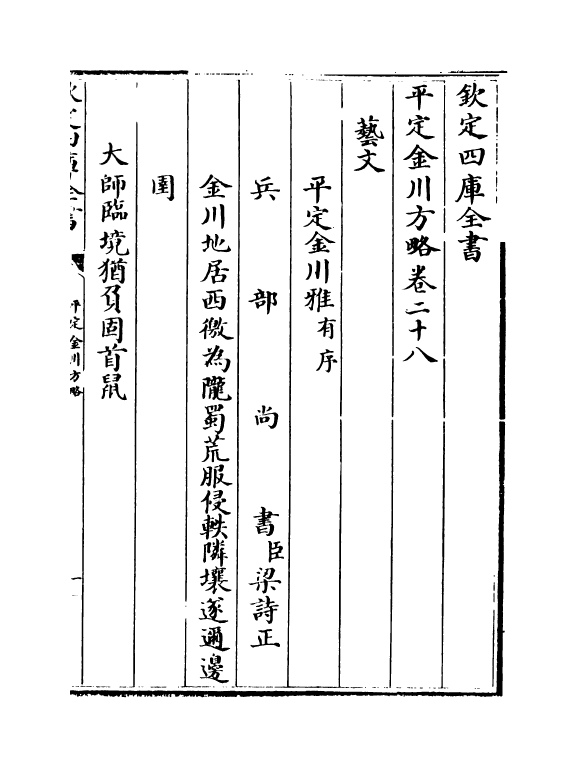 欽定四庫全書
平定金川方略卷二十八
藝文
平定金川雅有序
兵部尚書臣梁詩正
金川地居西徼為隴蜀荒服侵軼隣壤遂邇邊
圉
大師臨境猶負固首鼠
平定金川方略
一